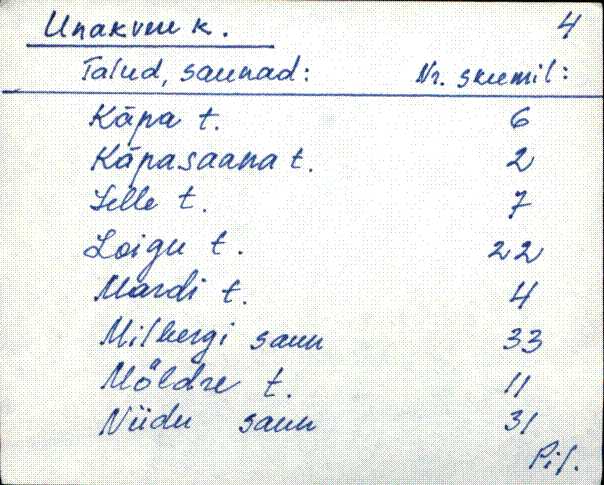 Unakvere k. 4
Talud, saunad: Nr. skeemil:
Käpa t. 6
Käpasaana t. 2
Lelle t. 7
Loigu t. 22
Mardi t. 4
Milbergi saun 33
Möldre t. 11
Niidu saun 31
Pil.